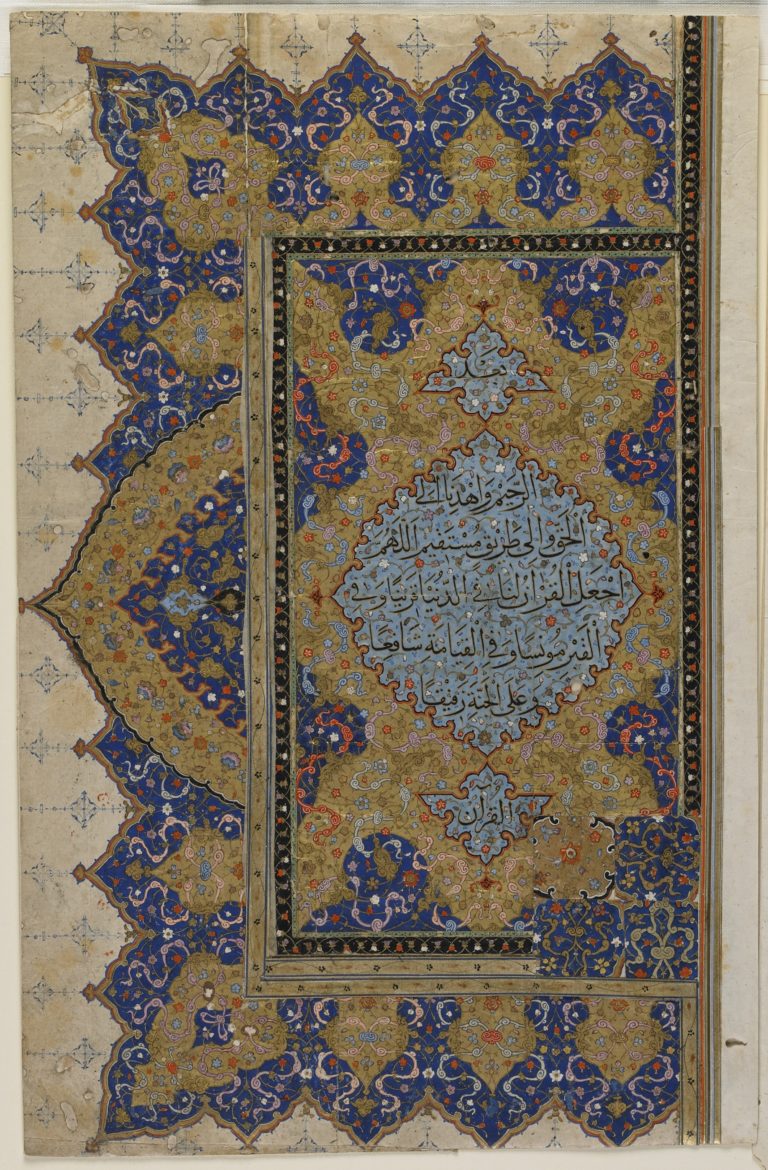 بعد
الرحيم واهدنا الى
الحق والى طريق مستقيم اللهم
اجعل القران لنا في الدنيا قرينا و في
القبر مونسا و في القيامة شافعا
و على الجنة رفيقا
القرآن